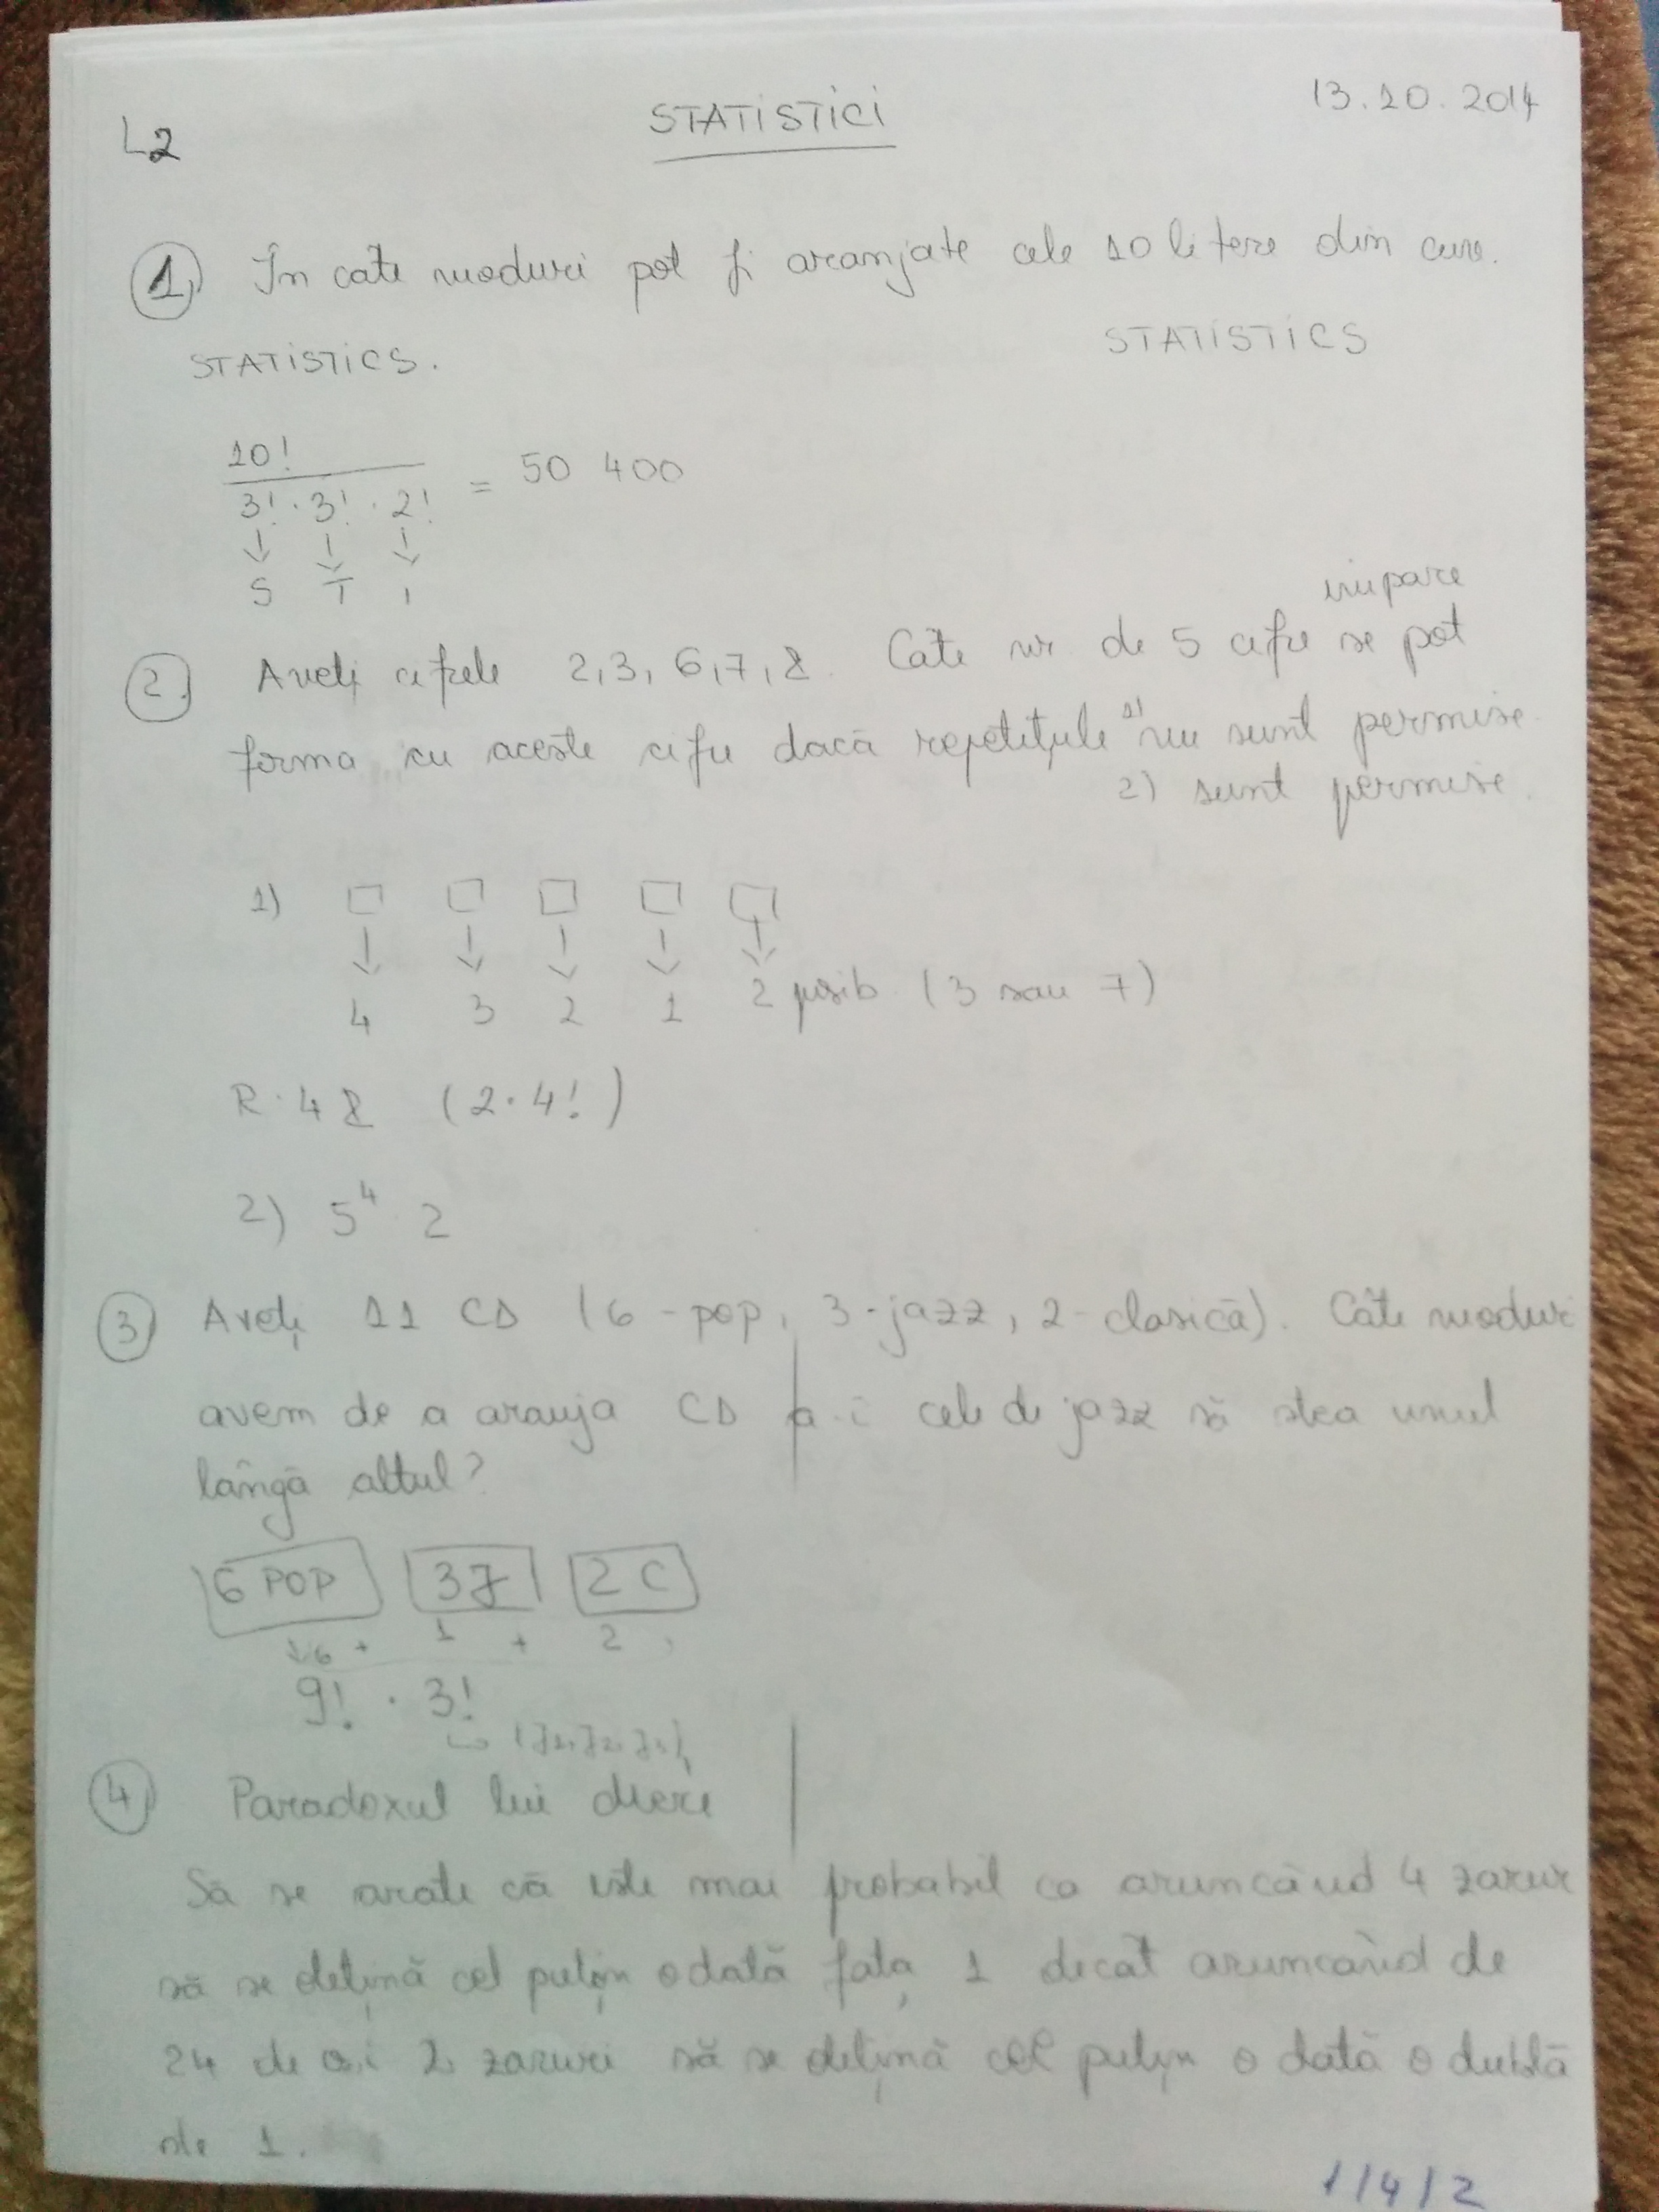 L2 STATISTICI 13.10.2014
1) În cate moduri pot fi aranjate cele 10 litere din cuv.
STATISTICS. STATISTICS
10!
3! · 3! · 2! = 50 400
↓ ↓ ↓
S T I
impare
2. Aveți cifrele 2, 3, 6, 7, 8. Câte nr de 5 cifre se pot
forma cu aceste cifre dacă repetițiile 1) nu sunt permise
2) sunt permise.
1) □ □ □ □ □
↓ ↓ ↓ ↓ ↓
4 3 2 1 2 posib. (3 sau 7)
R. 48 (2·4!)
2) 5⁴ · 2
3) Aveți 11 CD (6 - pop, 3 - jazz, 2 - clasică). Câte moduri
avem de a aranja CD a.î cele de jazz să stea unul
lângă altul?
6 POP 3J 2 C
↓6 + 1 + 2
9! · 3!
4) Paradoxul lui Mere
Să se arate că este mai probabil ca aruncând 4 zaruri
să se dețină cel puțin o dată fața 1 decât aruncând de
24 de ori 2 zaruri să se dețină cel puțin o dată o dublă
de 1.
1/4/2